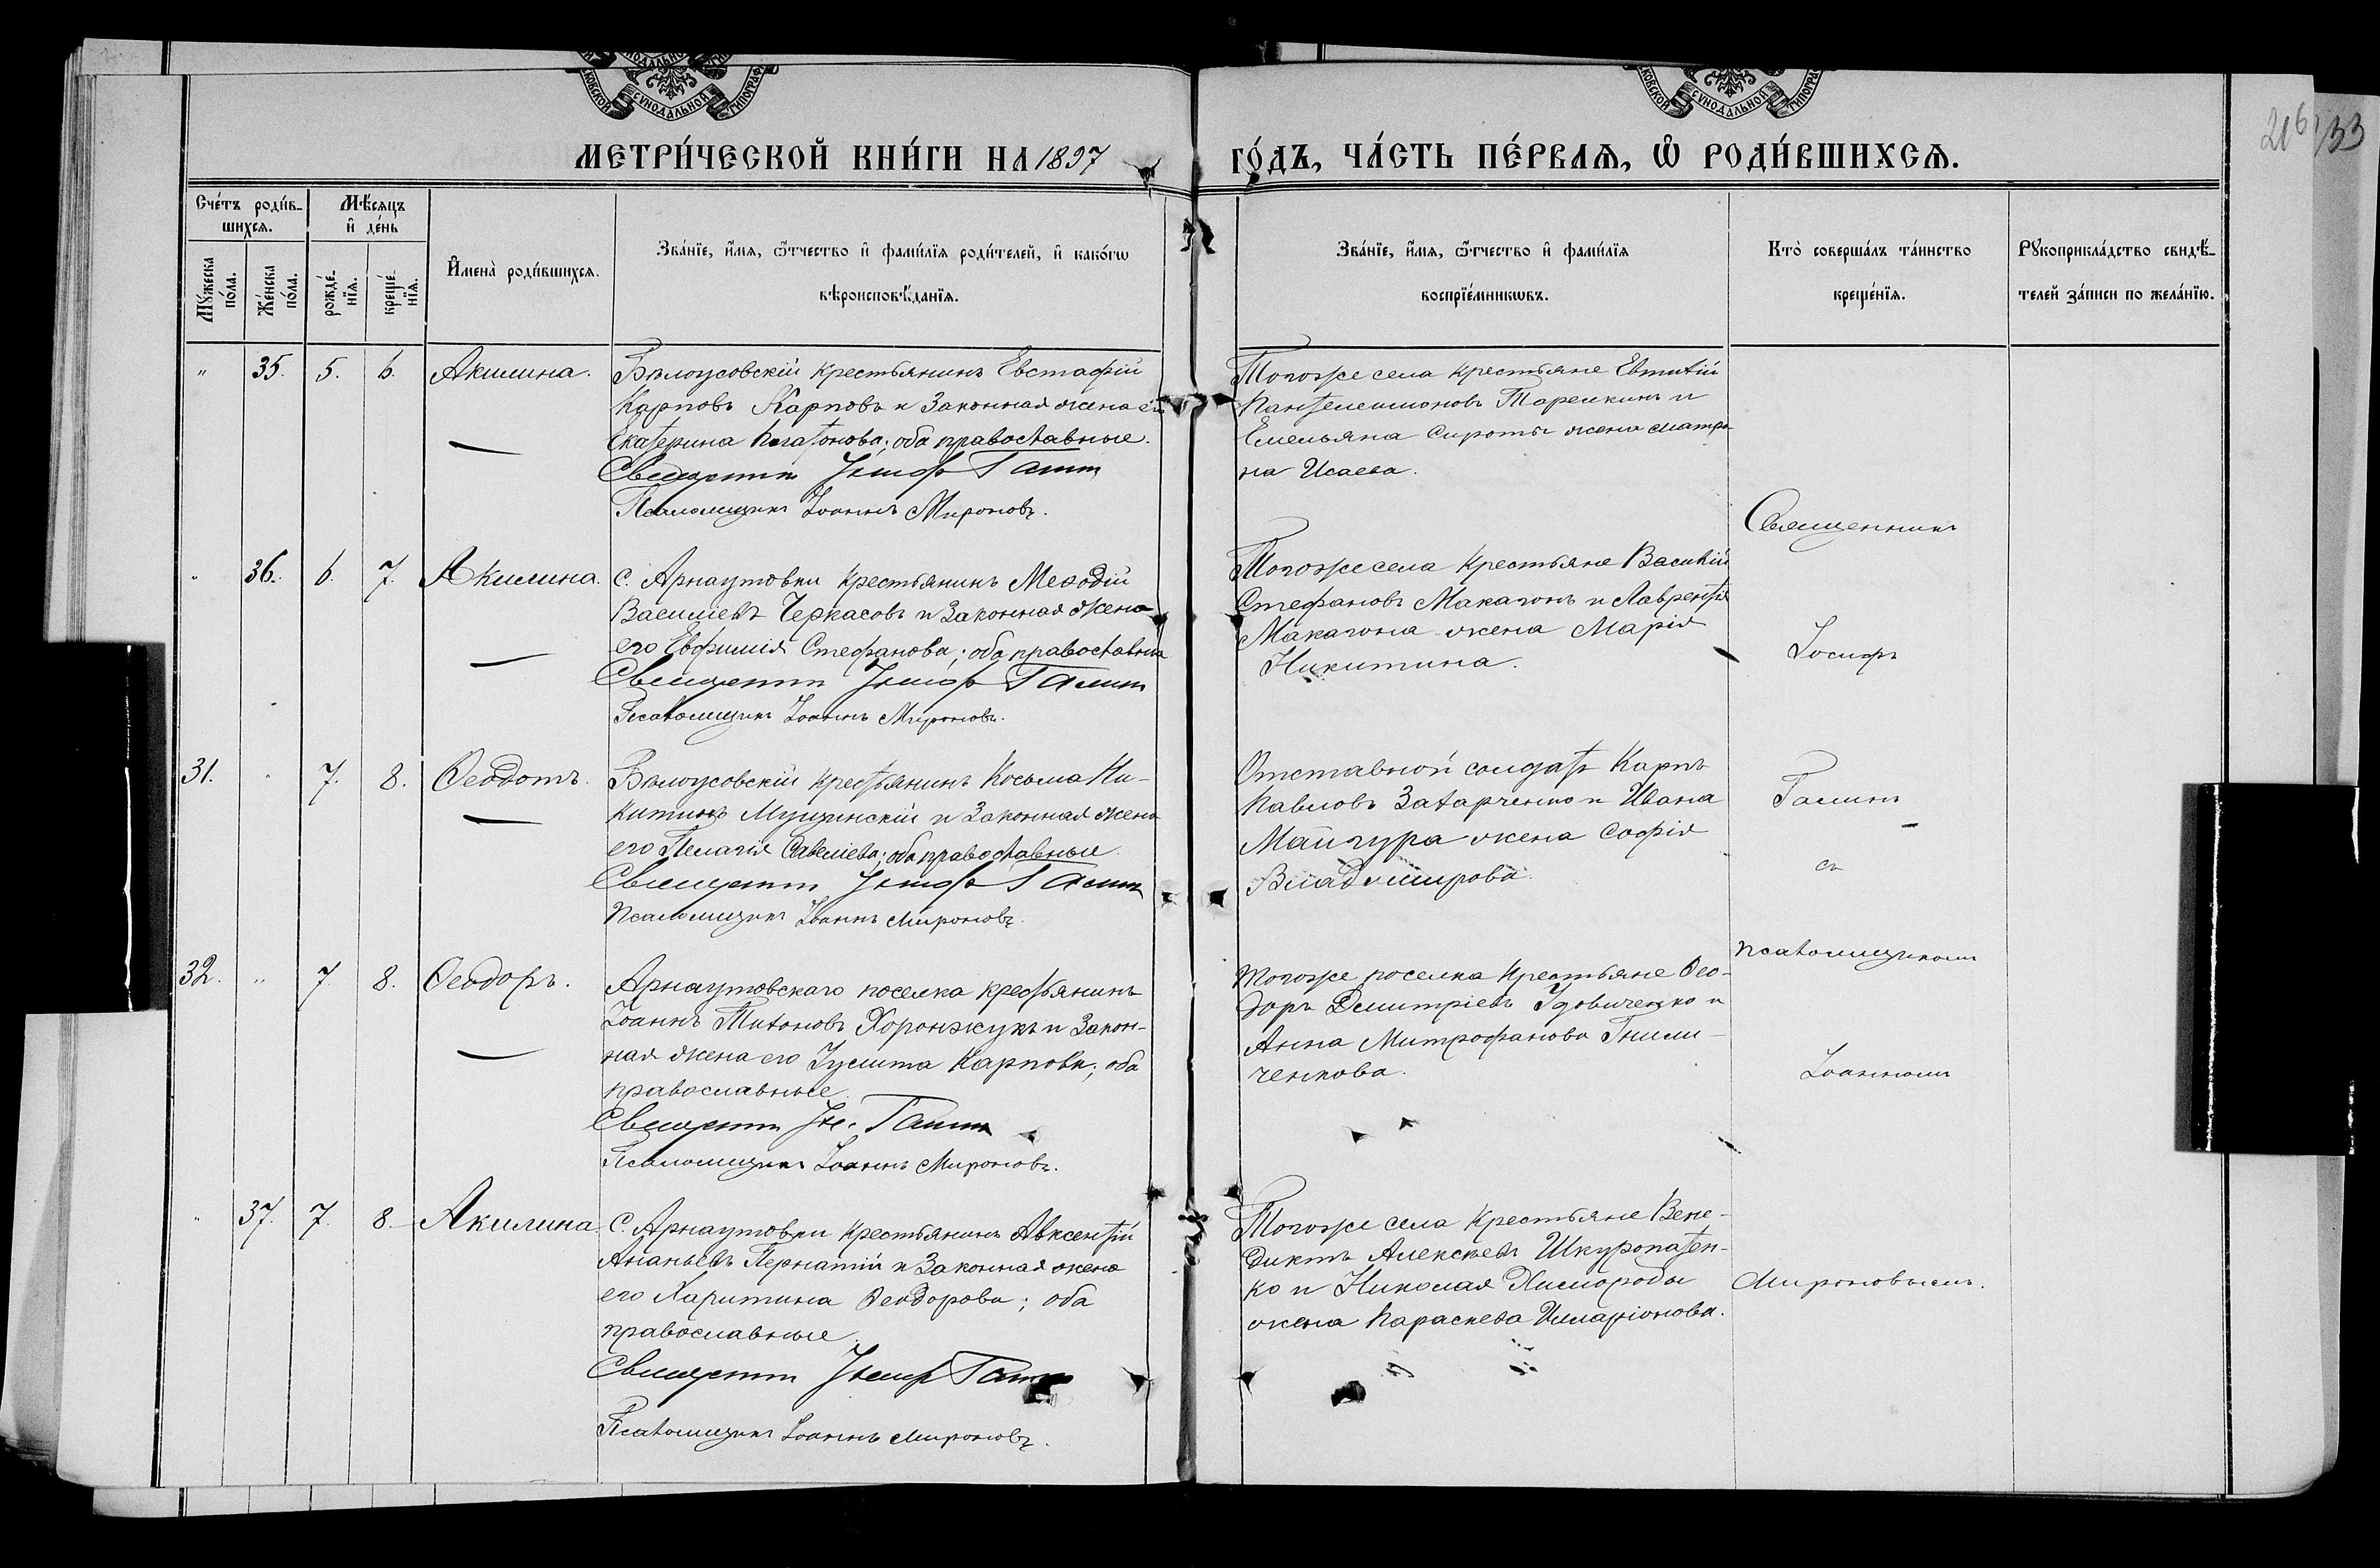 МЕТРИ́ЧЕСКОЙ КНИ́ГИ НА 1897 ГО́ДЪ, ЧА́СТЬ ПЕ́РВАЯ, Ѡ РОДИ́ВШИХСЯ.
216/33
Сче́тъ роди́в-
шихся.
Мѣ́сяцъ
и де́нь
Му́жеска
по́ла.
Же́нска
по́ла.
рожде́-
нїя.
креще́-
нїя.
Имена̀ роди́вшихся.
Зва́нїе, и́мя, ѻ́тчество и фами́лїя роди́телей, и како́гѡ
вѣроисповѣ́данїя.
Зва́нїе, и́мя, ѻ́тчество и фами́лїя
воспрїе́мникѡвъ.
Кто̀ соверша́лъ та́инство
креще́нїя.
Рукоприкла́дство свидѣ́-
телей за́писи по жела́нїю.
" 35. 5. 6. Акилина.
Бѣлоусовскій крестьянинъ Евстафій
Карповъ Карповъ и законная жена его
Екатерина Платонова; оба православные.
Священникъ Іосифъ Галинъ
Псаломщикъ Іоаннъ Мироновъ.
Тогоже села крестьяне Евтихій
Пантелеимоновъ Тарелкинъ и
Емельяна Сироты жена Матро-
на Исаева.
" 36. 6. 7. Акилина.
С. Арнаутовки крестьянинъ Меѳодій
Васильевъ Черкасовъ и законная жена
его Евфимія Стефанова; оба православные
Священникъ Іосифъ Галинъ
Псаломщикъ Іоаннъ Мироновъ.
Тогоже села крестьяне Василій
Стефановъ Макагонъ и Лаврентія
Макагона жена Марія
Никитина.
31. " 7. 8. Ѳеодотъ.
Бѣлоусовскій крестьянинъ Косьма Ни-
китинъ Мущинскій и законная жена
его Пелагія Савеліева; оба православные
Священникъ Іосифъ Галинъ
Псаломщикъ Іоаннъ Мироновъ.
Отставной солдатъ Карпъ
Павловъ Захарченко и Ивана
Майгура жена Софія
Владимирова.
32. " 7 8. Ѳеодоръ.
Арнаутовскаго поселка крестьянинъ
Іоаннъ Титоновъ Хоронжукъ и закон-
ная жена его Іулита Карпова; оба
православные
Священникъ Іос. Галинъ
Псаломщикъ Іоаннъ Мироновъ.
Тогоже поселка крестьяне Ѳео-
доръ Димитріевъ Удовиченко и
Анна Митрофанова Гнили-
ченкова.
" 37. 7. 8. Акилина
С. Арнаутовки крестьянинъ Авксентій
Ананьевъ Пернатій и законная жена
его Харитина Ѳеодорова; оба
православные
Священникъ Іосифъ Галинъ
Псаломщикъ Іоаннъ Мироновъ.
Тогоже села крестьяне Вене-
диктъ Алексѣевъ Шкуропатен-
ко и Николая
жена Параскева Иларіонова.
Священникъ
Іосифъ
Галинъ
съ
псаломщикомъ
Іоанномъ
Мироновымъ.